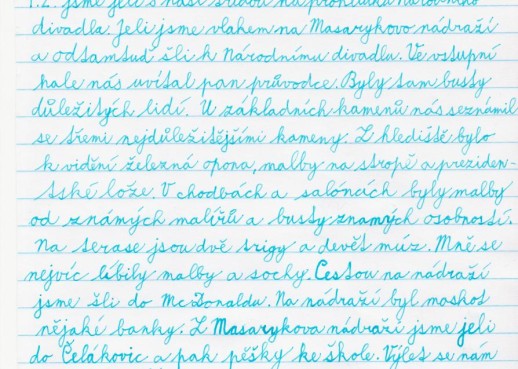 1.2. jsme jeli s naší třídou na prohlídku Národního
divadla. Jeli jsme vlakem na Masarykovo nádraží
a odtamtud šli k Národnímu divadlu. Ve vstupní
hale nás uvítal pan průvodce. Byly tam busty
důležitých lidí. U základních kamenů nás seznámil
se třemi nejdůležitějšími kameny. Z hlediště bylo
k vidění železná opona, malby na stropě a preziden-
tské lože. V chodbách a saloncích byly malby
od známých malířů a busty znamých osobností.
Na terase jsou dvě trigy a devět múz. Mně se
nejvíc líbily malby a sochy. Cestou na nádraží
jsme šli do McDonaldu. Na nádraží byl maskot
nějaké banky. Z Masarykova nádraží jsme jeli
do Čelákovic a pak pěšky ke škole. Výlet se nám